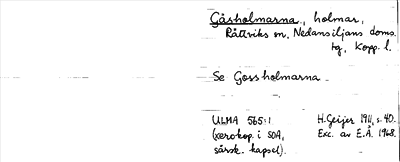 Gåsholmarna, holmar,
Rättviks sn, Nedansiljans doms.
tg, Kopp. l.
Se Gossholmarna.
ULMA 565:1 H. Geijer 1911, s. 40.
(xerokop. i SOA, Exc. av E.Å. 1968.
särsk. kapsel).